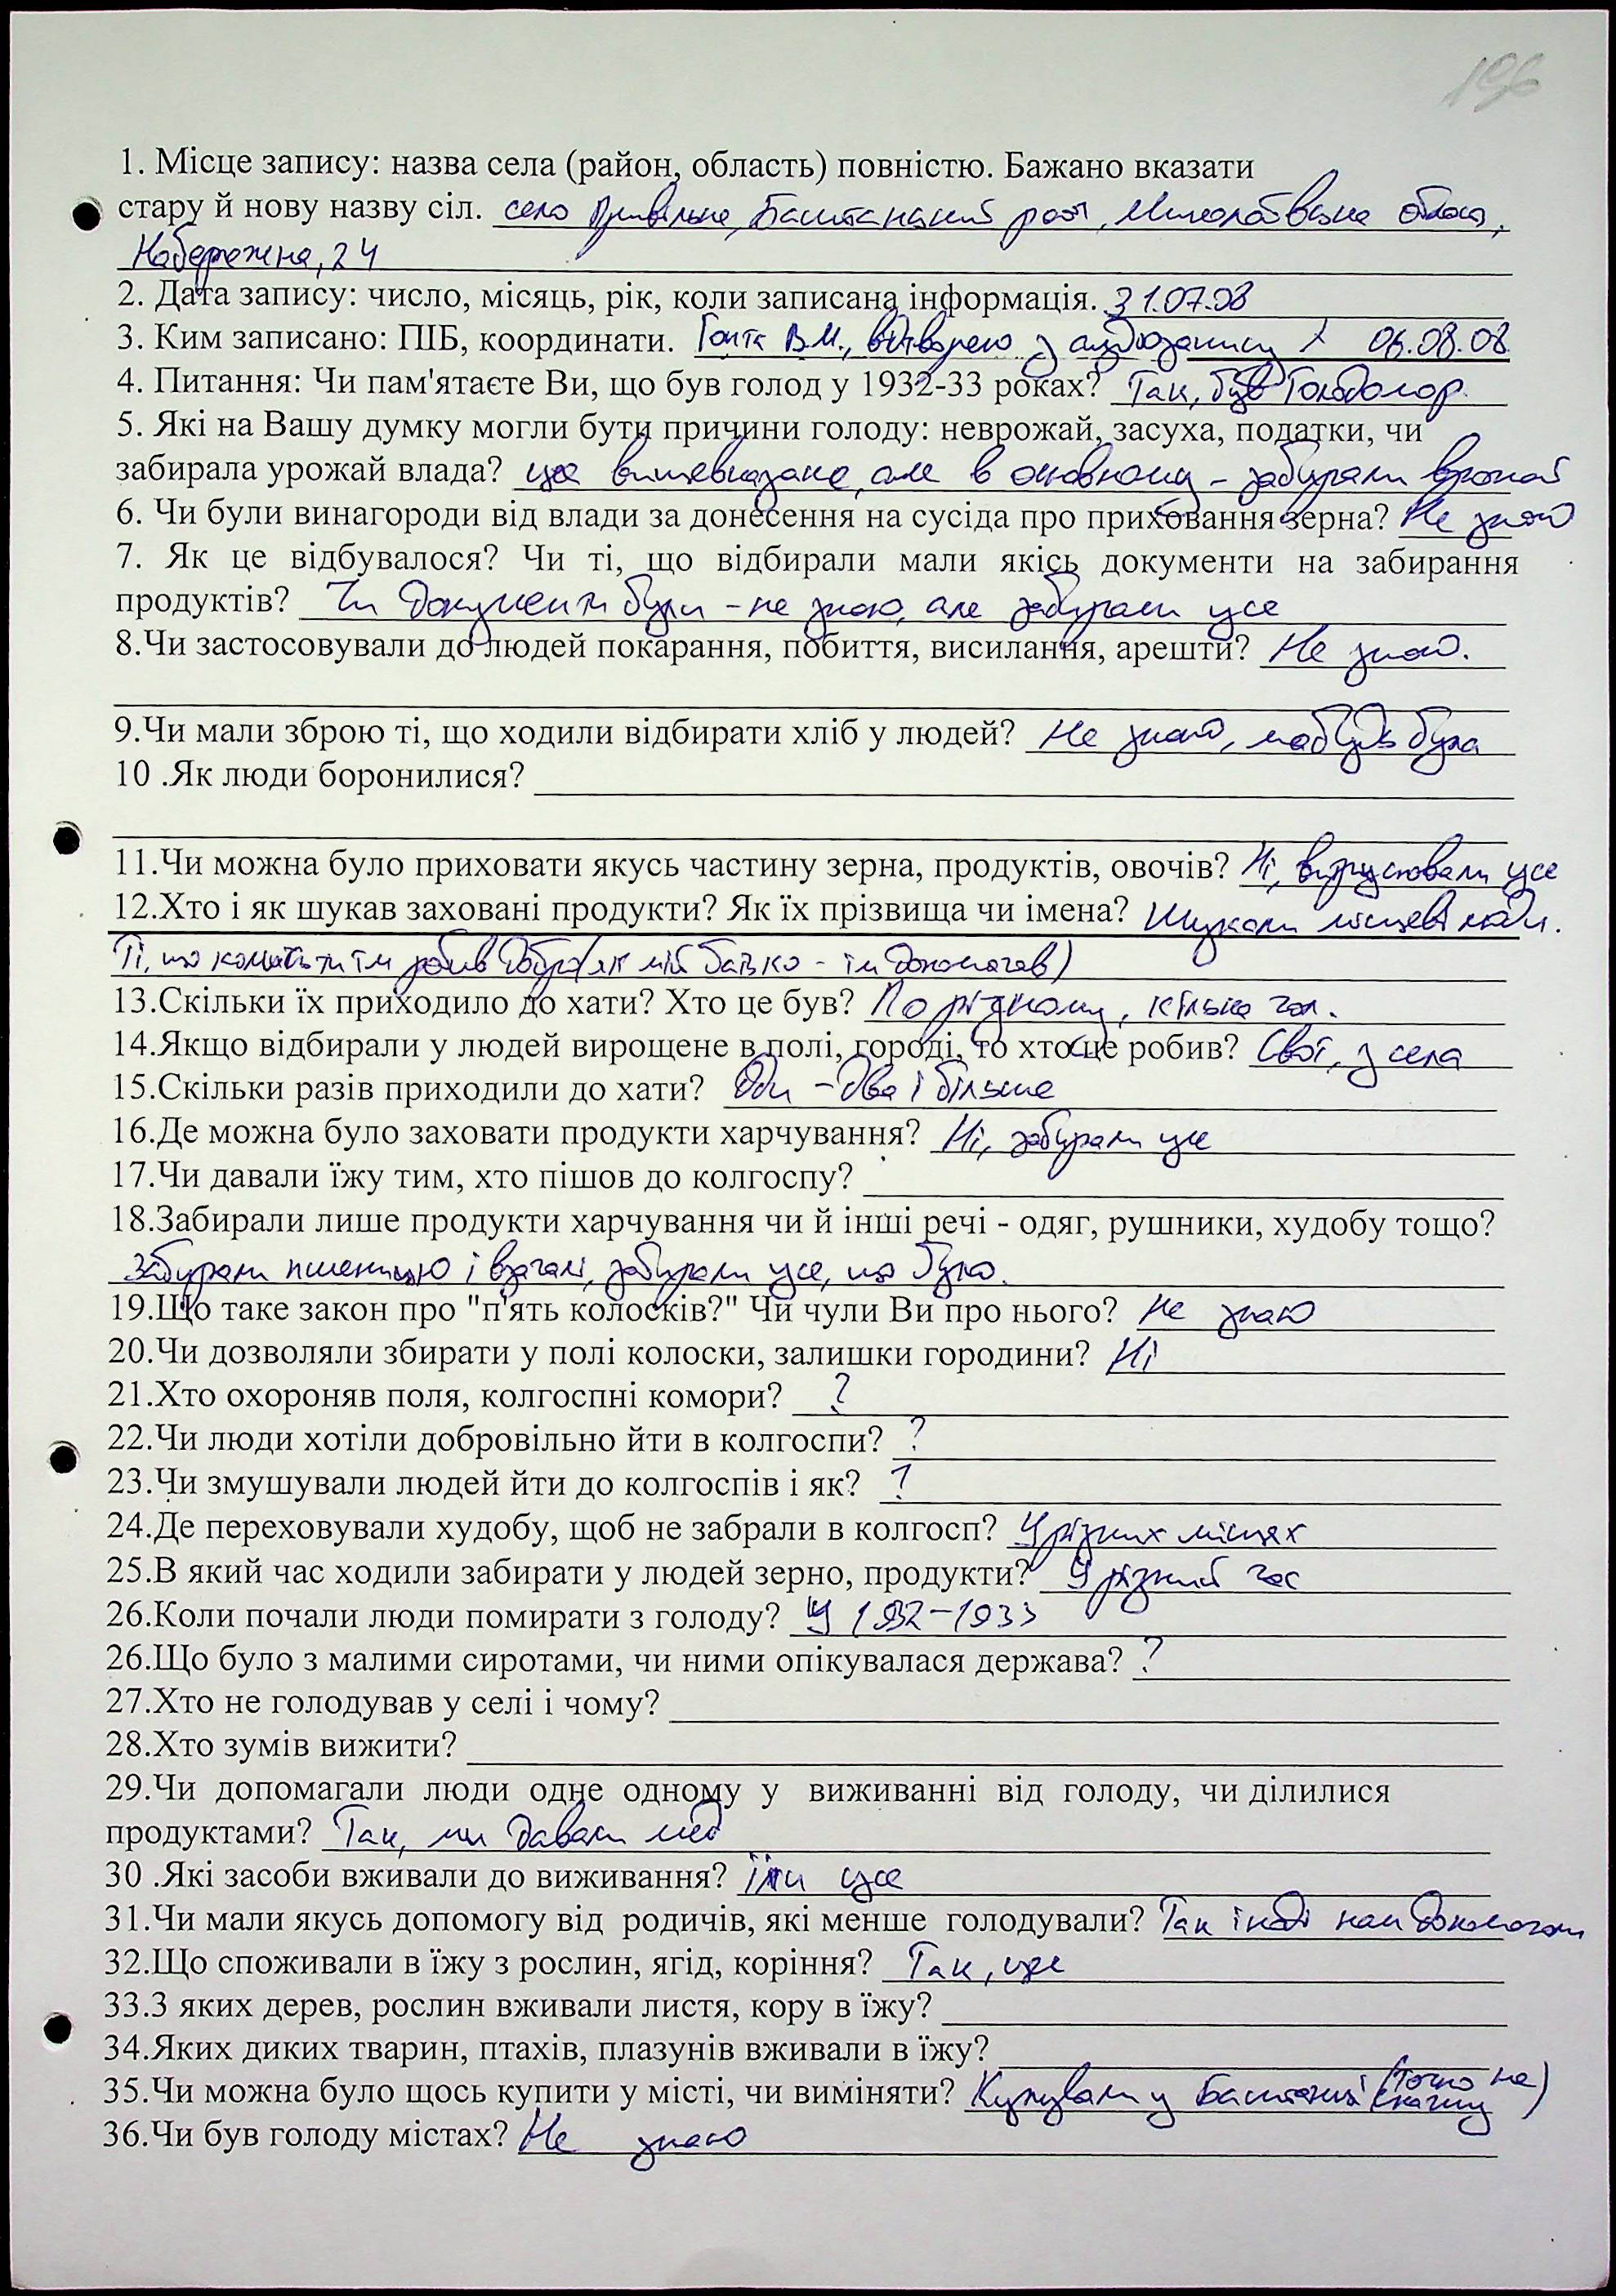 196
1. Місце запису: назва села (район, область) повністю. Бажано вказати
стару й нову назву сіл. село Привільне, Баштанський р-он, Миколаївська область,
Набережна, 24
2. Дата запису: число, місяць, рік, коли записана інформація. 31.07.08
3. Ким записано: ПІБ, координати. Гайта В.М., відтворено з аудіозапису 06.08.08
4. Питання: Чи пам'ятаєте Ви, що був голод у 1932-33 роках? Так, був Голодомор.
5. Які на Вашу думку могли бути причини голоду: неврожай, засуха, податки, чи
забирала урожай влада? усе вищевказане, але в основному – забирали врожай
6. Чи були винагороди від влади за донесення на сусіда про приховання зерна? Не знаю
7. Як це відбувалося? Чи ті, що відбирали мали якісь документи на забирання
продуктів? Чи документи були – не знаю, але забирали усе
8.Чи застосовували до людей покарання, побиття, висилання, арешти? Не знаю.
9.Чи мали зброю ті, що ходили відбирати хліб у людей? Не знаю, мабудь була
10 .Як люди боронилися?
11.Чи можна було приховати якусь частину зерна, продуктів, овочів? Ні, вигрібали усе
12.Хто і як шукав заховані продукти? Як їх прізвища чи імена? Шукали місцеві люди.
Ті, що колись ти їм робив добро (як мій батько – їм допомагав)
13.Скільки їх приходило до хати? Хто це був? По різному, кілька чол.
14.Якщо відбирали у людей вирощене в полі, городі, то хто це робив? Свої, з села
15.Скільки разів приходили до хати? Оди – два і більше
16.Де можна було заховати продукти харчування? Ні, забирали усе
17.Чи давали їжу тим, хто пішов до колгоспу?
18.Забирали лише продукти харчування чи й інші речі - одяг, рушники, худобу тощо?
Забирали пшеницю і взагалі, забирали усе, що було.
19.Що таке закон про "п'ять колосків?" Чи чули Ви про нього? Не знаю
20.Чи дозволяли збирати у полі колоски, залишки городини? Ні
21.Хто охороняв поля, колгоспні комори? ?
22.Чи люди хотіли добровільно йти в колгоспи? ?
23.Чи змушували людей йти до колгоспів і як? ?
24.Де переховували худобу, щоб не забрали в колгосп? У різних місцях
25.В який час ходили забирати у людей зерно, продукти? У різний час
26.Коли почали люди помирати з голоду? У 1932–1933
26.Що було з малими сиротами, чи ними опікувалася держава? ?
27.Хто не голодував у селі і чому?
28.Хто зумів вижити?
29.Чи допомагали люди одне одному у виживанні від голоду, чи ділилися
продуктами? Так, ми давали мед
30 .Які засоби вживали до виживання? їли усе
31.Чи мали якусь допомогу від родичів, які менше голодували? Так іноді нам допомагали
32.Що споживали в їжу з рослин, ягід, коріння? Так, усе
33.З яких дерев, рослин вживали листя, кору в їжу?
34.Яких диких тварин, птахів, плазунів вживали в їжу?
35.Чи можна було щось купити у місті, чи виміняти? Купували у Баштанці (точно не скажу)
36.Чи був голоду містах? Не знаю